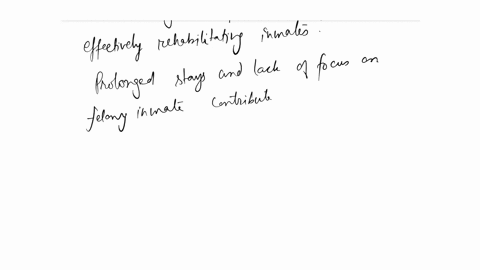 effectively rehabilitating inmates.
Prolonged stays and lack of focus on
felony inmate contribute